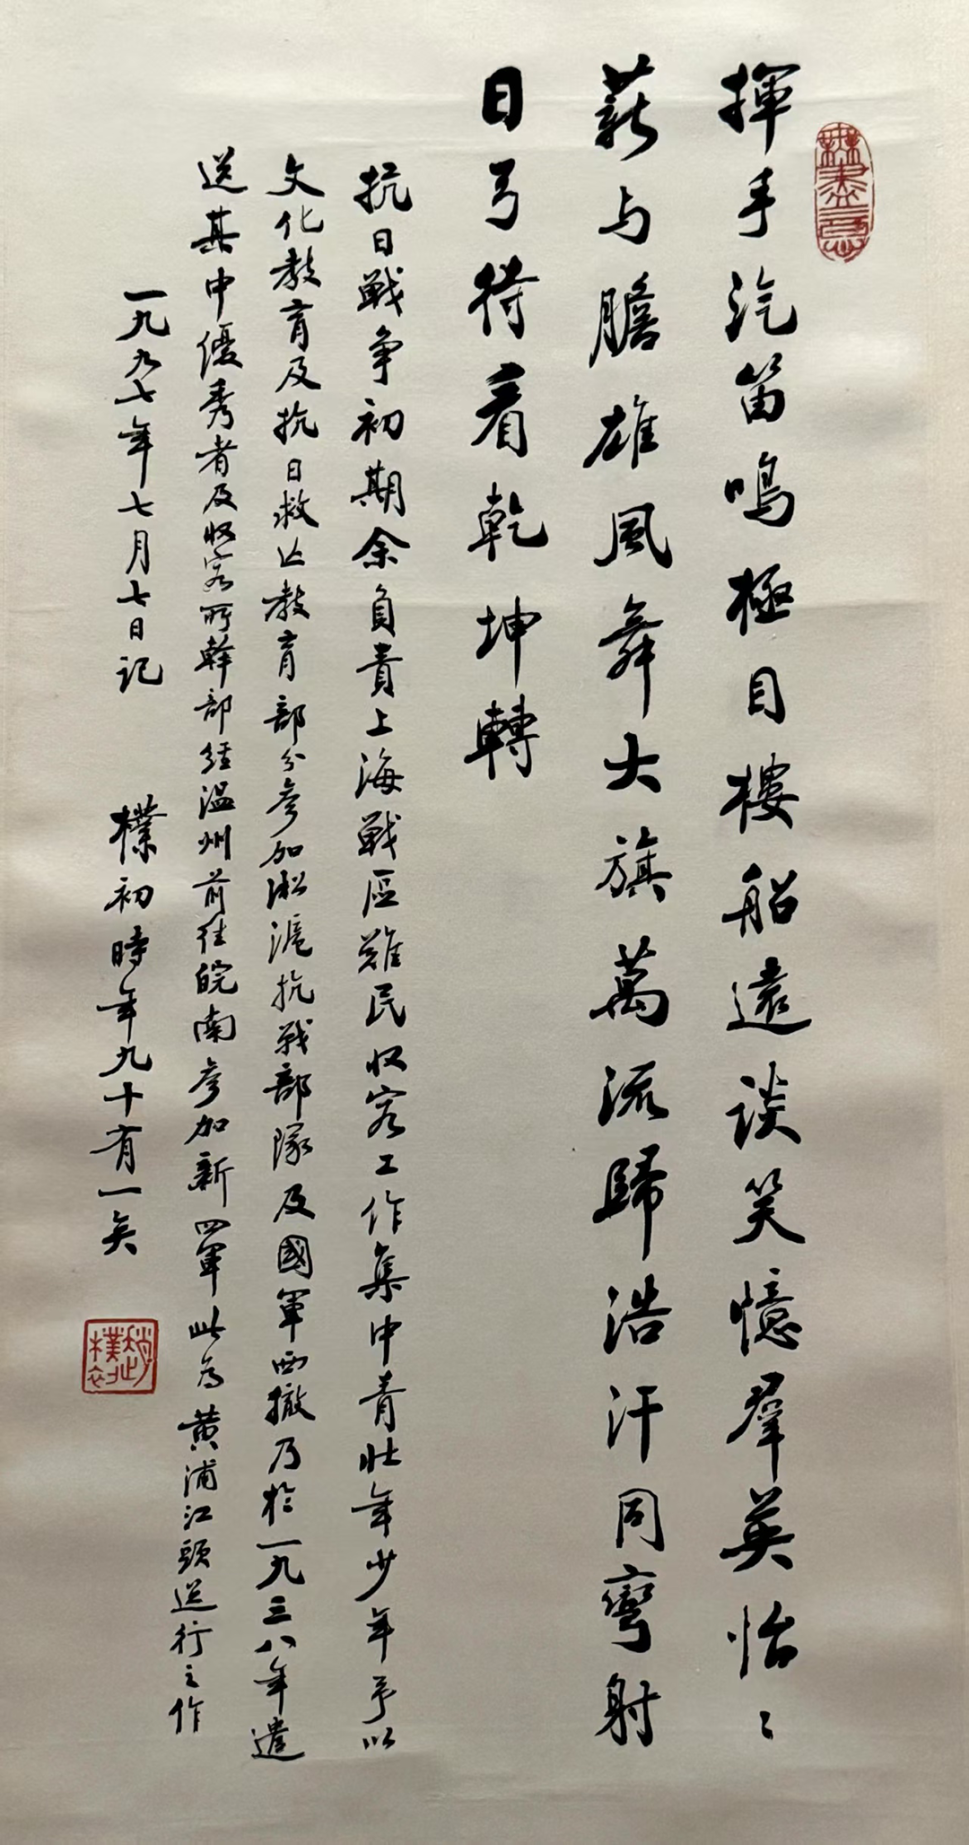 揮手汽笛鳴極目樓船遠談笑憶羣英怡〻
薪与膽雄風舞大旗萬流歸浩汗同彎射
日弓待看乾坤轉
抗日戰争初期余負責上海戰區難民收容工作集中青壯年少年予以
文化教育及抗日救亡教育部分参加淞滬抗戰部隊及國軍西撤乃於一九三八年遣
送其中優秀者及收容所幹部經温州前往皖南参加新四軍此為黄浦江頭送行之作
一九九七年七月七日記 樸初時年九十有一矣
無盡意
趙樸初